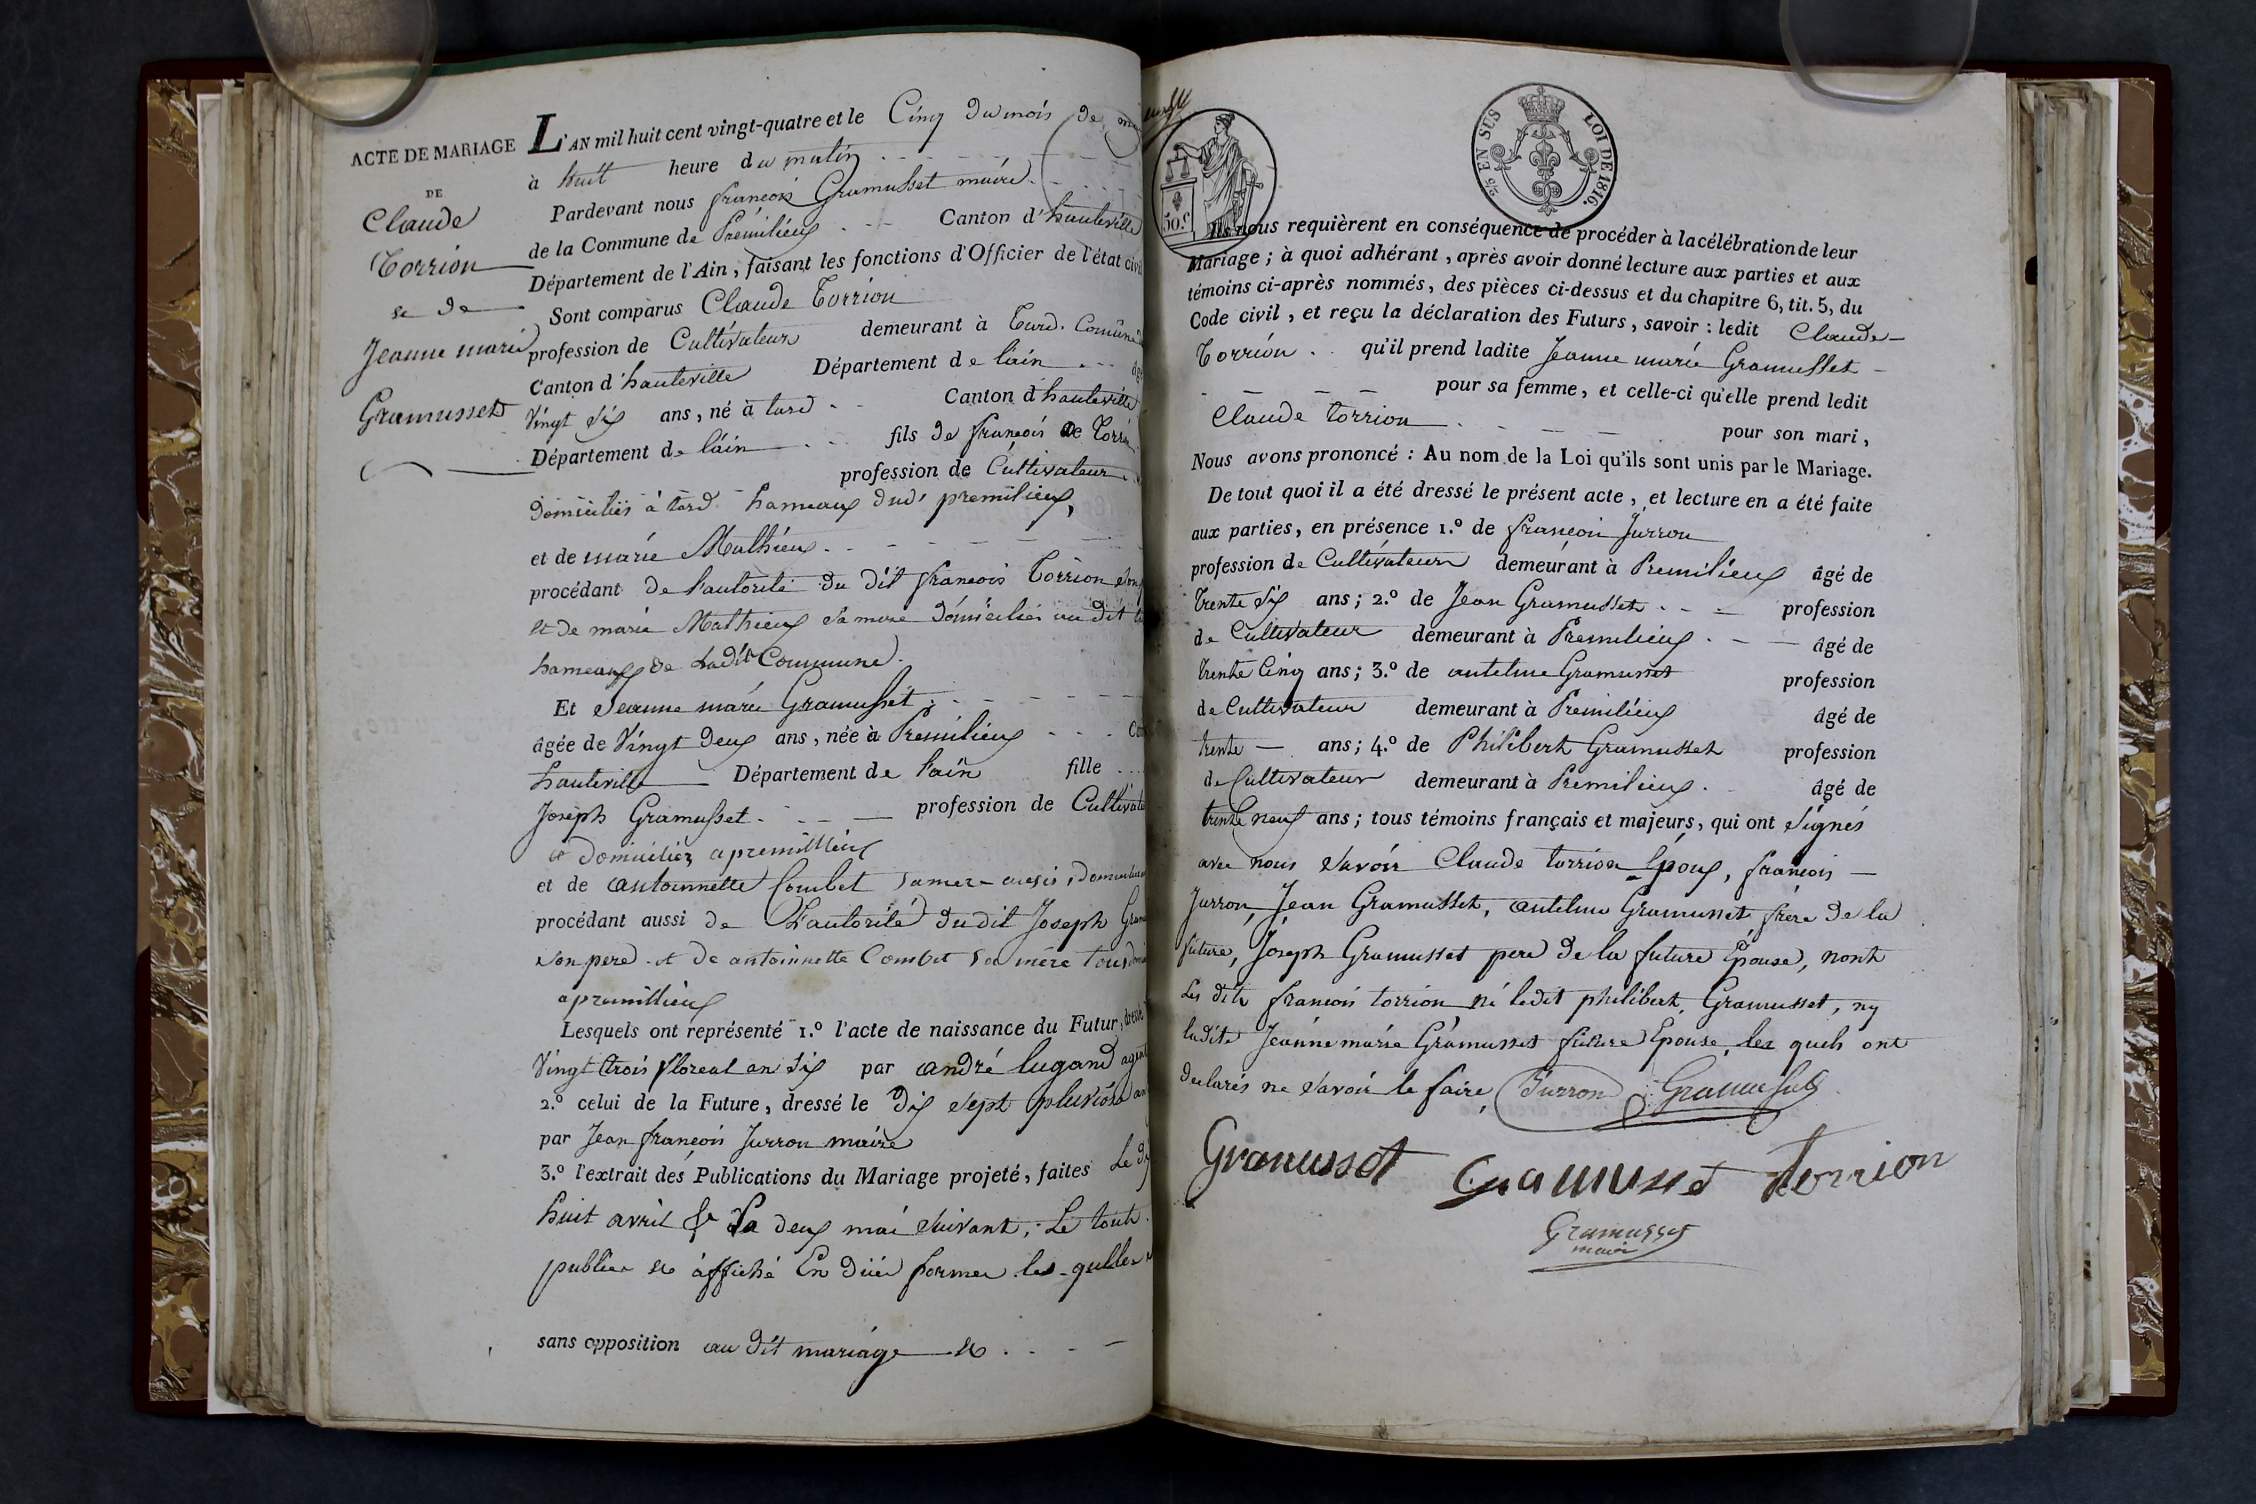 ACTE DE MARIAGE
DE
Claude
Torrion
et De
Jeanne marie
Gramusset
L'AN mil huit cent vingt-quatre et le Cinq Du mois De
à huit heure du matin
Pardevant nous françois Gramusset maire
de la Commune de Prémilieux Canton d'hauteville
Département de l'Ain, faisant les fonctions d'Officier de l'état civil
Sont comparus Claude Torrion
profession de Cultivateur demeurant à Tard. Comune
Canton d'hauteville Département de lain
Vingt six ans, né à tard Canton d'hauteville
Département de lain fils de françois Torrion
profession de Cultivateur
Domiciliés à tard hameaux dud. premilieux,
et de marie Mathieux
procédant De l'autorité du dit francois Torrion
et De marie Mathieux sa mere domiciliés au dit
hameaux De Ladite Commune.
Et Jeanne marie Gramusset
âgée de Vingt Deux ans, née à Premilieux
hauteville Département de l'ain fille
Joseph Gramusset profession de Cultivate
domiciliez a premillieux
et de antoinnette Combet sa mere aussi
procédant aussi de L'autorité Dudit Joseph
son pere et De antoinnette Combet sa mère tous
a premillieux
Lesquels ont représenté 1.º l'acte de naissance du Futur, dressé
Vingt trois floreal an six par andré lugand agent
2.º celui de la Future, dressé le Dix sept pluviose an
par Jean françois Jurron maire
3.º l'extrait des Publications du Mariage projeté, faites Le
huit avril & deux mai suivant, Le tout
publier et affiché En düer former les-quelles
sans opposition au Dit mariage
50.c
2/5 EN SUS LOI DE 1816.
Ils nous requièrent en conséquence de procéder à la célébration de leur
Mariage; à quoi adhérant, après avoir donné lecture aux parties et aux
témoins ci-après nommés, des pièces ci-dessus et du chapitre 6, tit. 5, du
Code civil, et reçu la déclaration des Futurs, savoir: ledit Claude
Torrion qu'il prend ladite Jeanne marie Gramusset
pour sa femme, et celle-ci qu'elle prend ledit
Claude torrion pour son mari,
Nous avons prononcé: Au nom de la Loi qu'ils sont unis par le Mariage.
De tout quoi il a été dressé le présent acte, et lecture en a été faite
aux parties, en présence 1.º de françois Jurron
profession de Cultivateur demeurant à Premilieux âgé de
trente six ans; 2.º de Jean Gramusset profession
de Cultivateur demeurant à Premilieux âgé de
trente Cinq ans; 3.º de antelme Gramusset profession
de Cultivateur demeurant à Premilieux âgé de
trente ans; 4.º de Philibert Gramusset profession
de Cultivateur demeurant à Premilieux âgé de
trente neuf ans; tous témoins français et majeurs, qui ont signés
avec nous savoir Claude torrion Epoux, françois
Jurron, Jean Gramusset, antelme Gramusset frere De la
future, Joseph Gramusset pere De la future Epouse, nont
Les dits francois torrion ni ledit philibert Gramusset, ny
ladite Jeanne marie Gramusset future Epouse, les quels ont
declarés ne savoir le faire Jurron Gramusset
Gramusset Gramusset torrion
Gramusset
maire